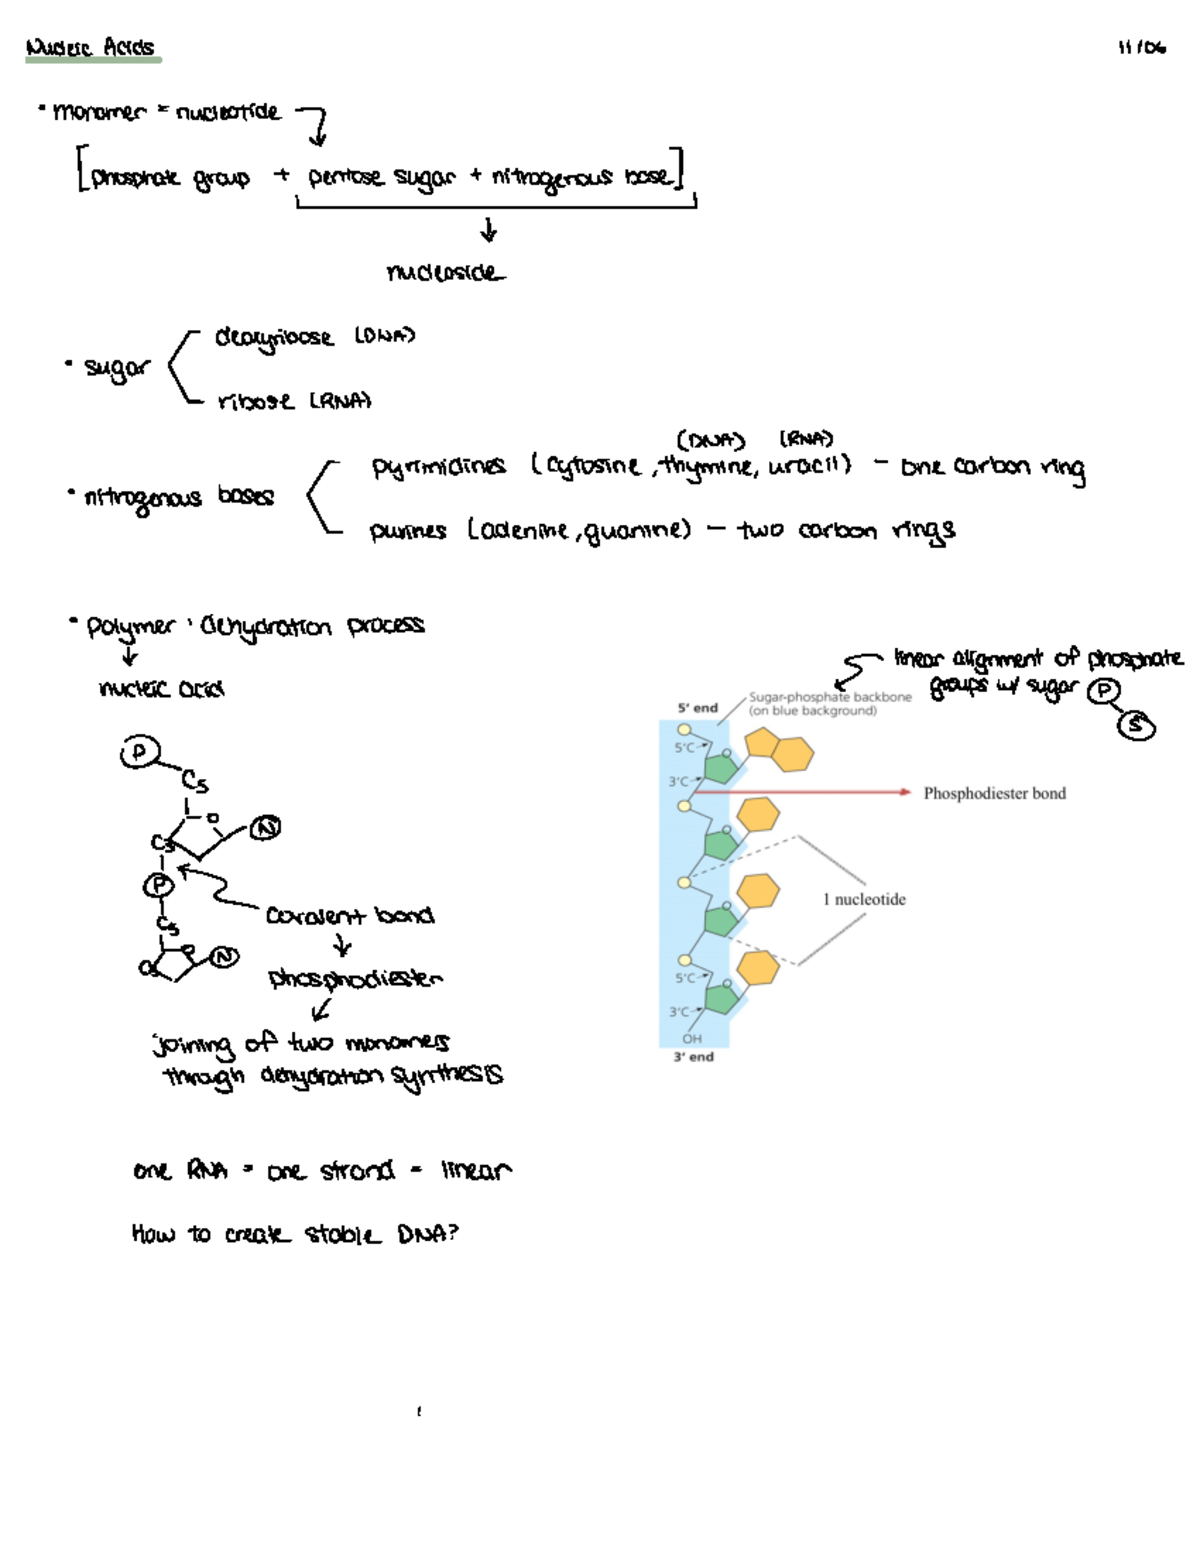 Nucleic Acids
11/06
• monomer = nucleotide
[phosphate group + pentose sugar + nitrogenous base]
↓
nucleoside
• sugar
deoxyribose (DNA)
ribose (RNA)
• nitrogenous bases
(DNA) (RNA)
pyrimidines (cytosine, thymine, uracil) - one carbon ring
purines (adenine, guanine) - two carbon rings
• polymer : dehydration process
↓
nucleic acid
linear alignment of phosphate
groups w/ sugar P
S
Sugar-phosphate backbone
(on blue background)
5' end
5'C
3'C
Phosphodiester bond
1 nucleotide
5'C
3'C
OH
3' end
P
C5
O
N
C3
P
C5
O
N
C3
covalent bond
↓
phosphodiester
joining of two monomers
through dehydration synthesis
one RNA = one strand = linear
How to create stable DNA?